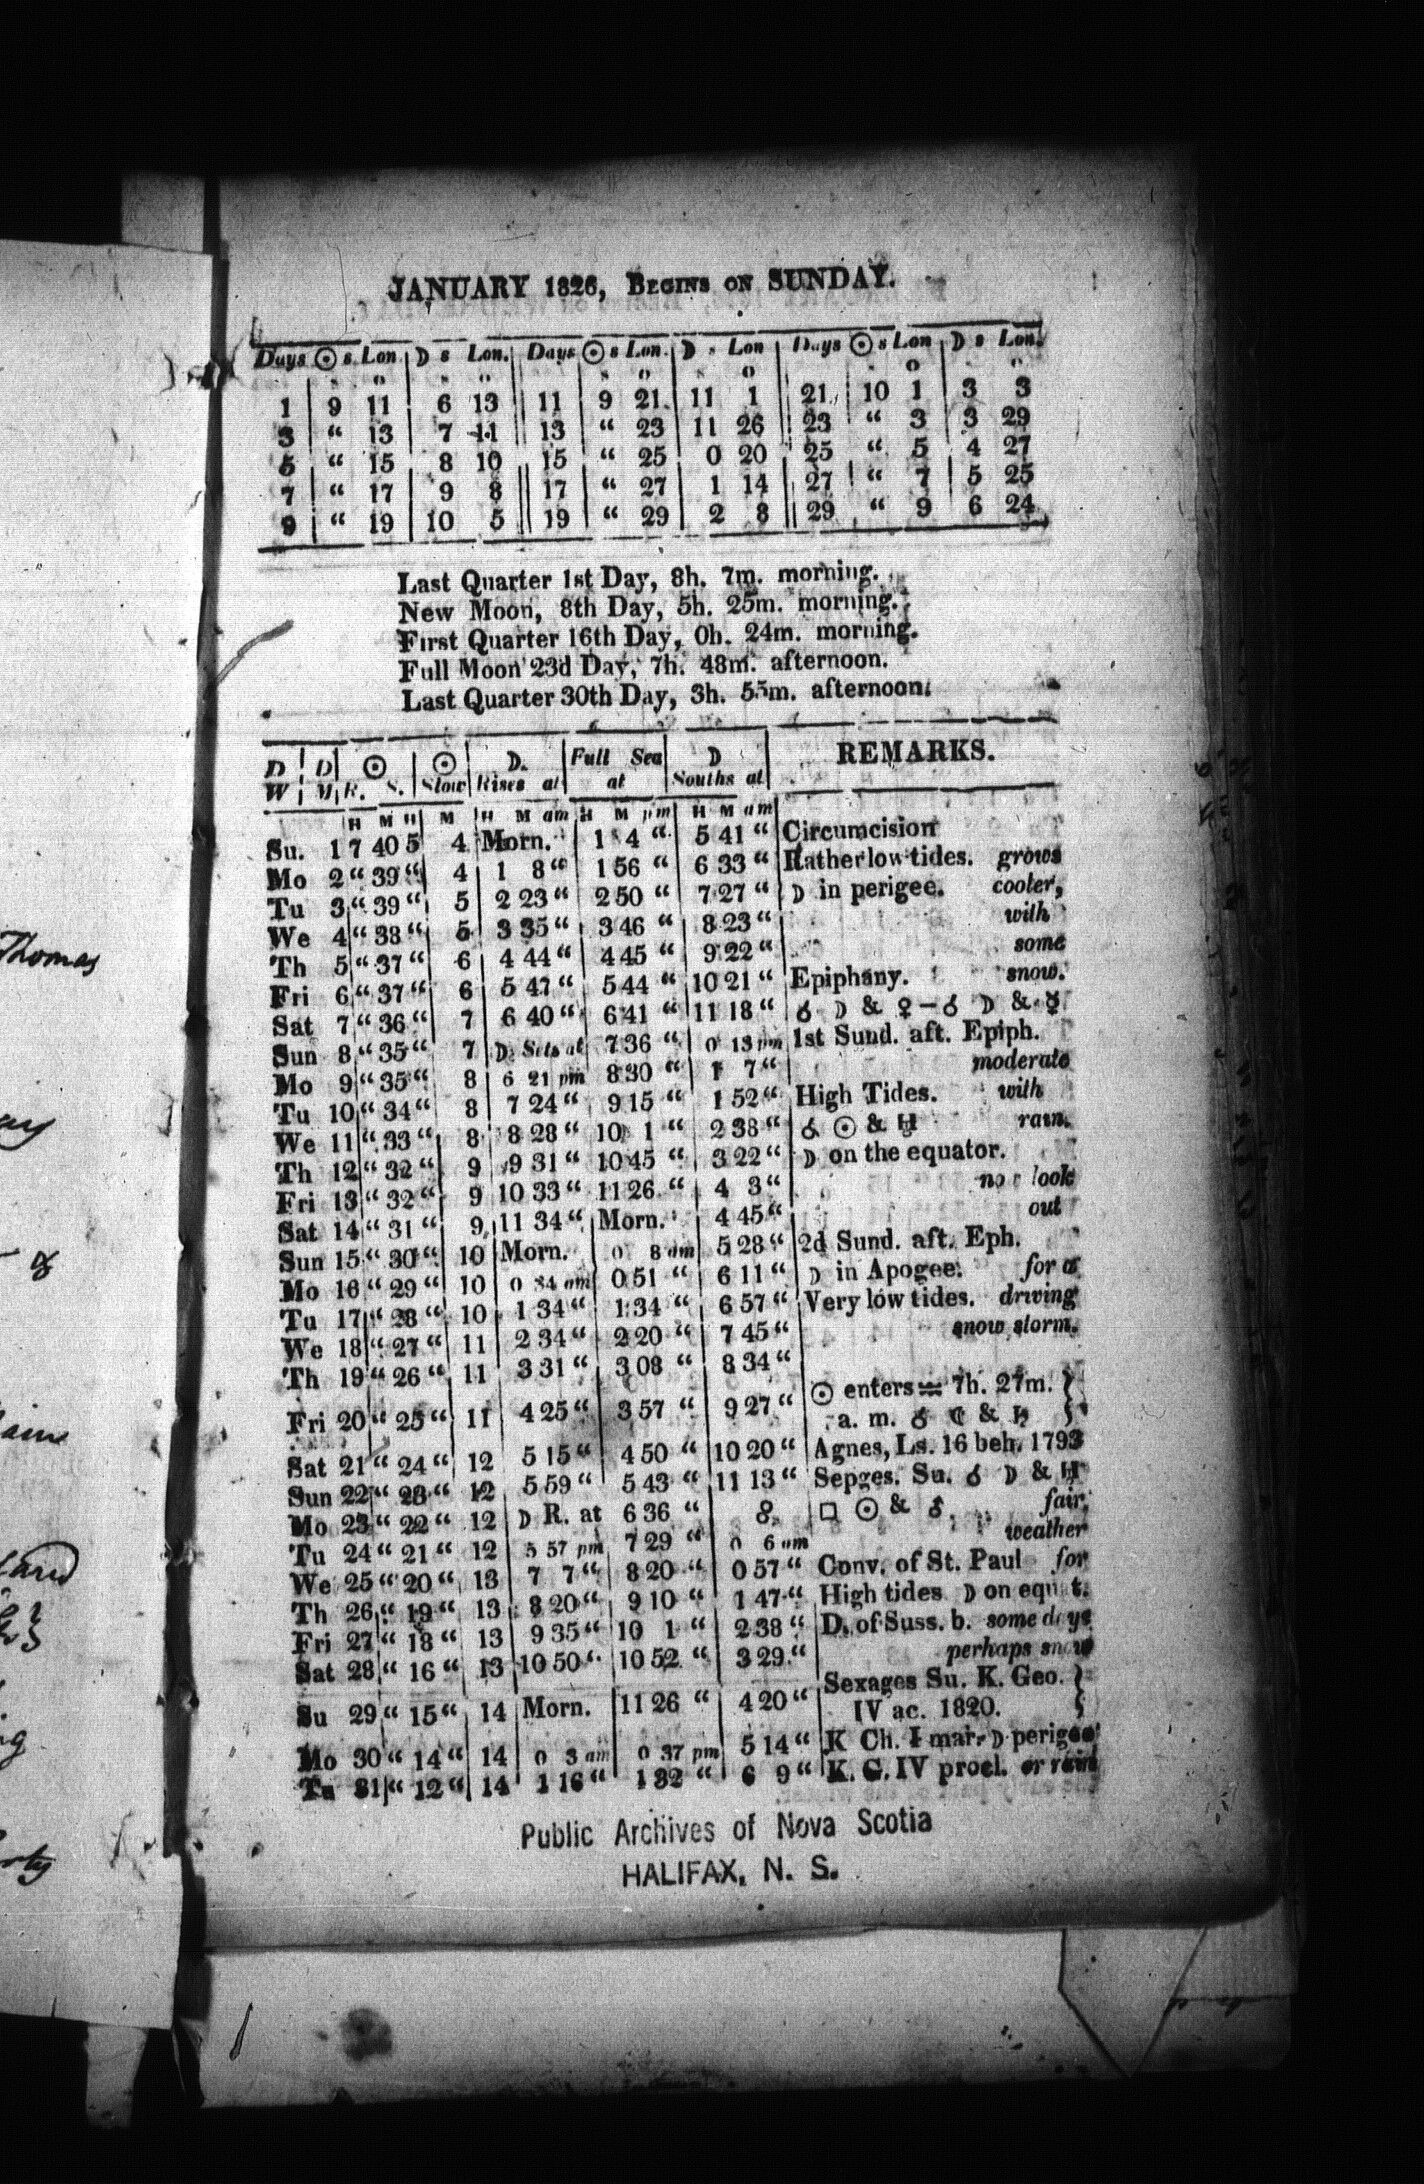 JANUARY 1826, BEGINS ON SUNDAY.
Days ☉ s Lon. ☽ s Lon. Days ☉ s Lon. ☽ s Lon Days ☉ s Lon ☽ s Lon.
1 9 11 6 13 11 9 21 11 1 21 10 1 3 3
3 “ 13 7 11 13 “ 23 11 26 23 “ 3 3 29
5 “ 15 8 10 15 “ 25 0 20 25 “ 5 4 27
7 “ 17 9 8 17 “ 27 1 14 27 “ 7 5 25
9 “ 19 10 5 19 “ 29 2 8 29 “ 9 6 24
Last Quarter 1st Day, 8h. 7m. morning.
New Moon, 8th Day, 5h. 25m. morning.
First Quarter 16th Day, 0h. 24m. morning.
Full Moon 23d Day, 7h. 48m. afternoon.
Last Quarter 30th Day, 3h. 55m. afternoon.
D D ☉ ☉ ☽. Full Sea ☽ REMARKS.
W M R. S. Slow Rises at at Souths at
H M H M H M am H M pm H M am
Su. 1 7 40 5 4 Morn. 1 4 “ 5 41 “ Circumcision
Mo 2 “ 39 “ 4 1 8 “ 1 56 “ 6 33 “ Rather low tides. grows
Tu 3 “ 39 “ 5 2 23 “ 2 50 “ 7 27 “ ☽ in perigee. cooler,
We 4 “ 38 “ 5 3 35 “ 3 46 “ 8 23 “ with
Th 5 “ 37 “ 6 4 44 “ 4 45 “ 9 22 “ some
Fri 6 “ 37 “ 6 5 47 “ 5 44 “ 10 21 “ Epiphany. snow.
Sat 7 “ 36 “ 7 6 40 “ 6 41 “ 11 18 “ ☌ ☽ & ♀ – ☌ ☽ & ☿
Sun 8 “ 35 “ 7 ☽ Sets at 7 36 “ 0 13 pm 1st Sund. aft. Epiph.
Mo 9 “ 35 “ 8 6 21 pm 8 30 “ 1 7 “ moderate
Tu 10 “ 34 “ 8 7 24 “ 9 15 “ 1 52 “ High Tides. with
We 11 “ 33 “ 8 8 28 “ 10 1 “ 2 38 “ ☌ ☉ & ♅ rain.
Th 12 “ 32 “ 9 9 31 “ 10 45 “ 3 22 “ ☽ on the equator.
Fri 13 “ 32 “ 9 10 33 “ 11 26 “ 4 3 “ look
Sat 14 “ 31 “ 9 11 34 “ Morn. 4 45 “ out
Sun 15 “ 30 “ 10 Morn. 0 8 am 5 28 “ 2d Sund. aft. Eph.
Mo 16 “ 29 “ 10 0 34 am 0 51 “ 6 11 “ ☽ in Apogee. for a
Tu 17 “ 28 “ 10 1 34 “ 1 34 “ 6 57 “ Very low tides. driving
We 18 “ 27 “ 11 2 34 “ 2 20 “ 7 45 “ snow storm.
Th 19 “ 26 “ 11 3 31 “ 3 08 “ 8 34 “
Fri 20 “ 25 “ 11 4 25 “ 3 57 “ 9 27 “ ☉ enters ♒ 7h. 27m. }
a. m. ☌ ☾ & ♄ }
Sat 21 “ 24 “ 12 5 15 “ 4 50 “ 10 20 “ Agnes, Ls. 16 beh. 1793
Sun 22 “ 23 “ 12 5 59 “ 5 43 “ 11 13 “ Sepges. Su. ☌ ☽ & ♅
Mo 23 “ 22 “ 12 ☽ R. at 6 36 “ 8. □ ☉ & ♂. fair
Tu 24 “ 21 “ 12 5 57 pm 7 29 “ 0 6 am weather
We 25 “ 20 “ 13 7 7 “ 8 20 “ 0 57 “ Conv. of St. Paul for
Th 26 “ 19 “ 13 8 20 “ 9 10 “ 1 47 “ High tides ☽ on equat.
Fri 27 “ 18 “ 13 9 35 “ 10 1 “ 2 38 “ D. of Suss. b. some days
Sat 28 “ 16 “ 13 10 50 “ 10 52 “ 3 29 “ perhaps snow
Su 29 “ 15 “ 14 Morn. 11 26 “ 4 20 “ Sexages Su. K. Geo. }
IV ac. 1820. }
Mo 30 “ 14 “ 14 0 3 am 0 37 pm 5 14 “ K Ch. I mar. ☽ perigee
Tu 31 “ 12 “ 14 1 16 “ 1 32 “ 6 9 “ K. G. IV procl. or rain
Public Archives of Nova Scotia
HALIFAX, N. S.
Thomas